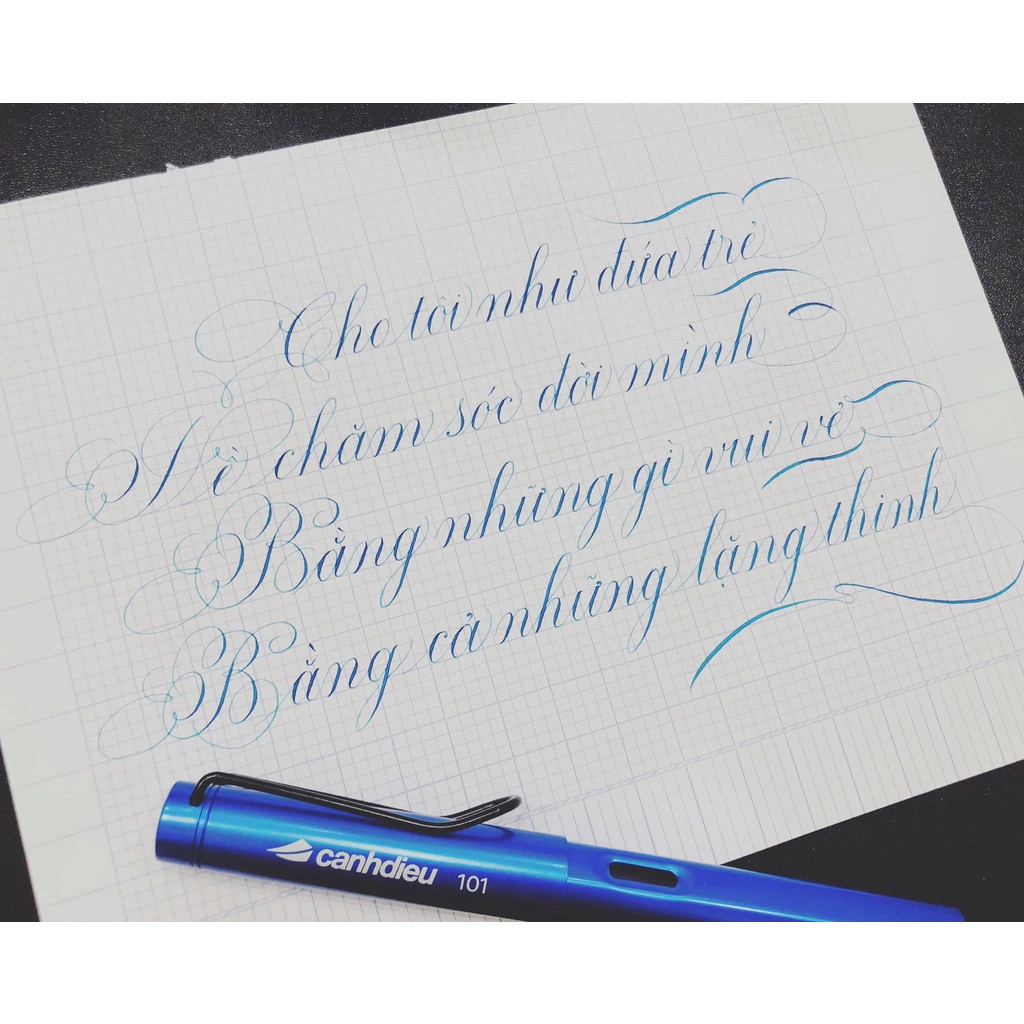 Cho tôi như đứa trẻ
Về chăm sóc đời mình
Bằng những gì vui vẻ
Bằng cả những lặng thinh
canhdieu 101